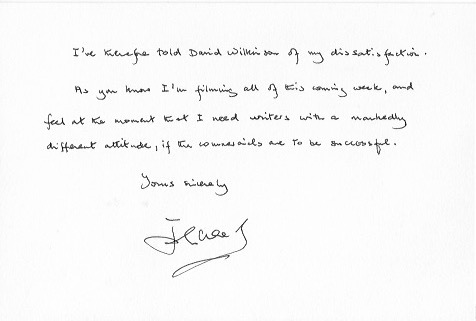 I've therefore told David Wilkinson of my dissatisfaction.
As you know I'm filming all of this coming week, and
feel at the moment that I need writers with a markedly
different attitude, if the commercials are to be successful.
Yours sincerely